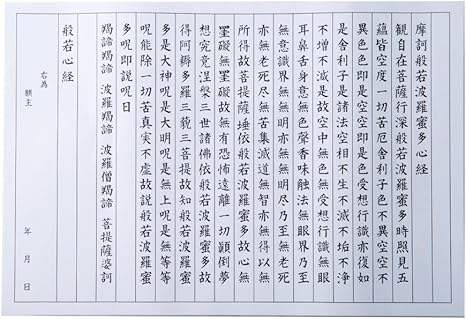 摩訶般若波羅蜜多心経
観自在菩薩行深般若波羅蜜多時照見五
蘊皆空度一切苦厄舎利子色不異空空不
異色色即是空空即是色受想行識亦復如
是舎利子是諸法空相不生不滅不垢不浄
不増不減是故空中無色無受想行識無眼
耳鼻舌身意無色聲香味触法無眼界乃至
無意識界無無明亦無無明尽乃至無老死
亦無老死尽無苦集滅道無智亦無得以無
所得故菩提薩埵依般若波羅蜜多故心無
罣礙無罣礙故無有恐怖遠離一切顛倒夢
想究竟涅槃三世諸佛依般若波羅蜜多故
得阿耨多羅三藐三菩提故知般若波羅蜜
多是大神呪是大明呪是無上呪是無等等
呪能除一切苦真実不虚故説般若波羅蜜
多呪即説呪曰
羯諦羯諦 波羅羯諦 波羅僧羯諦 菩提薩婆訶
般若心経
右為
願主 年 月 日